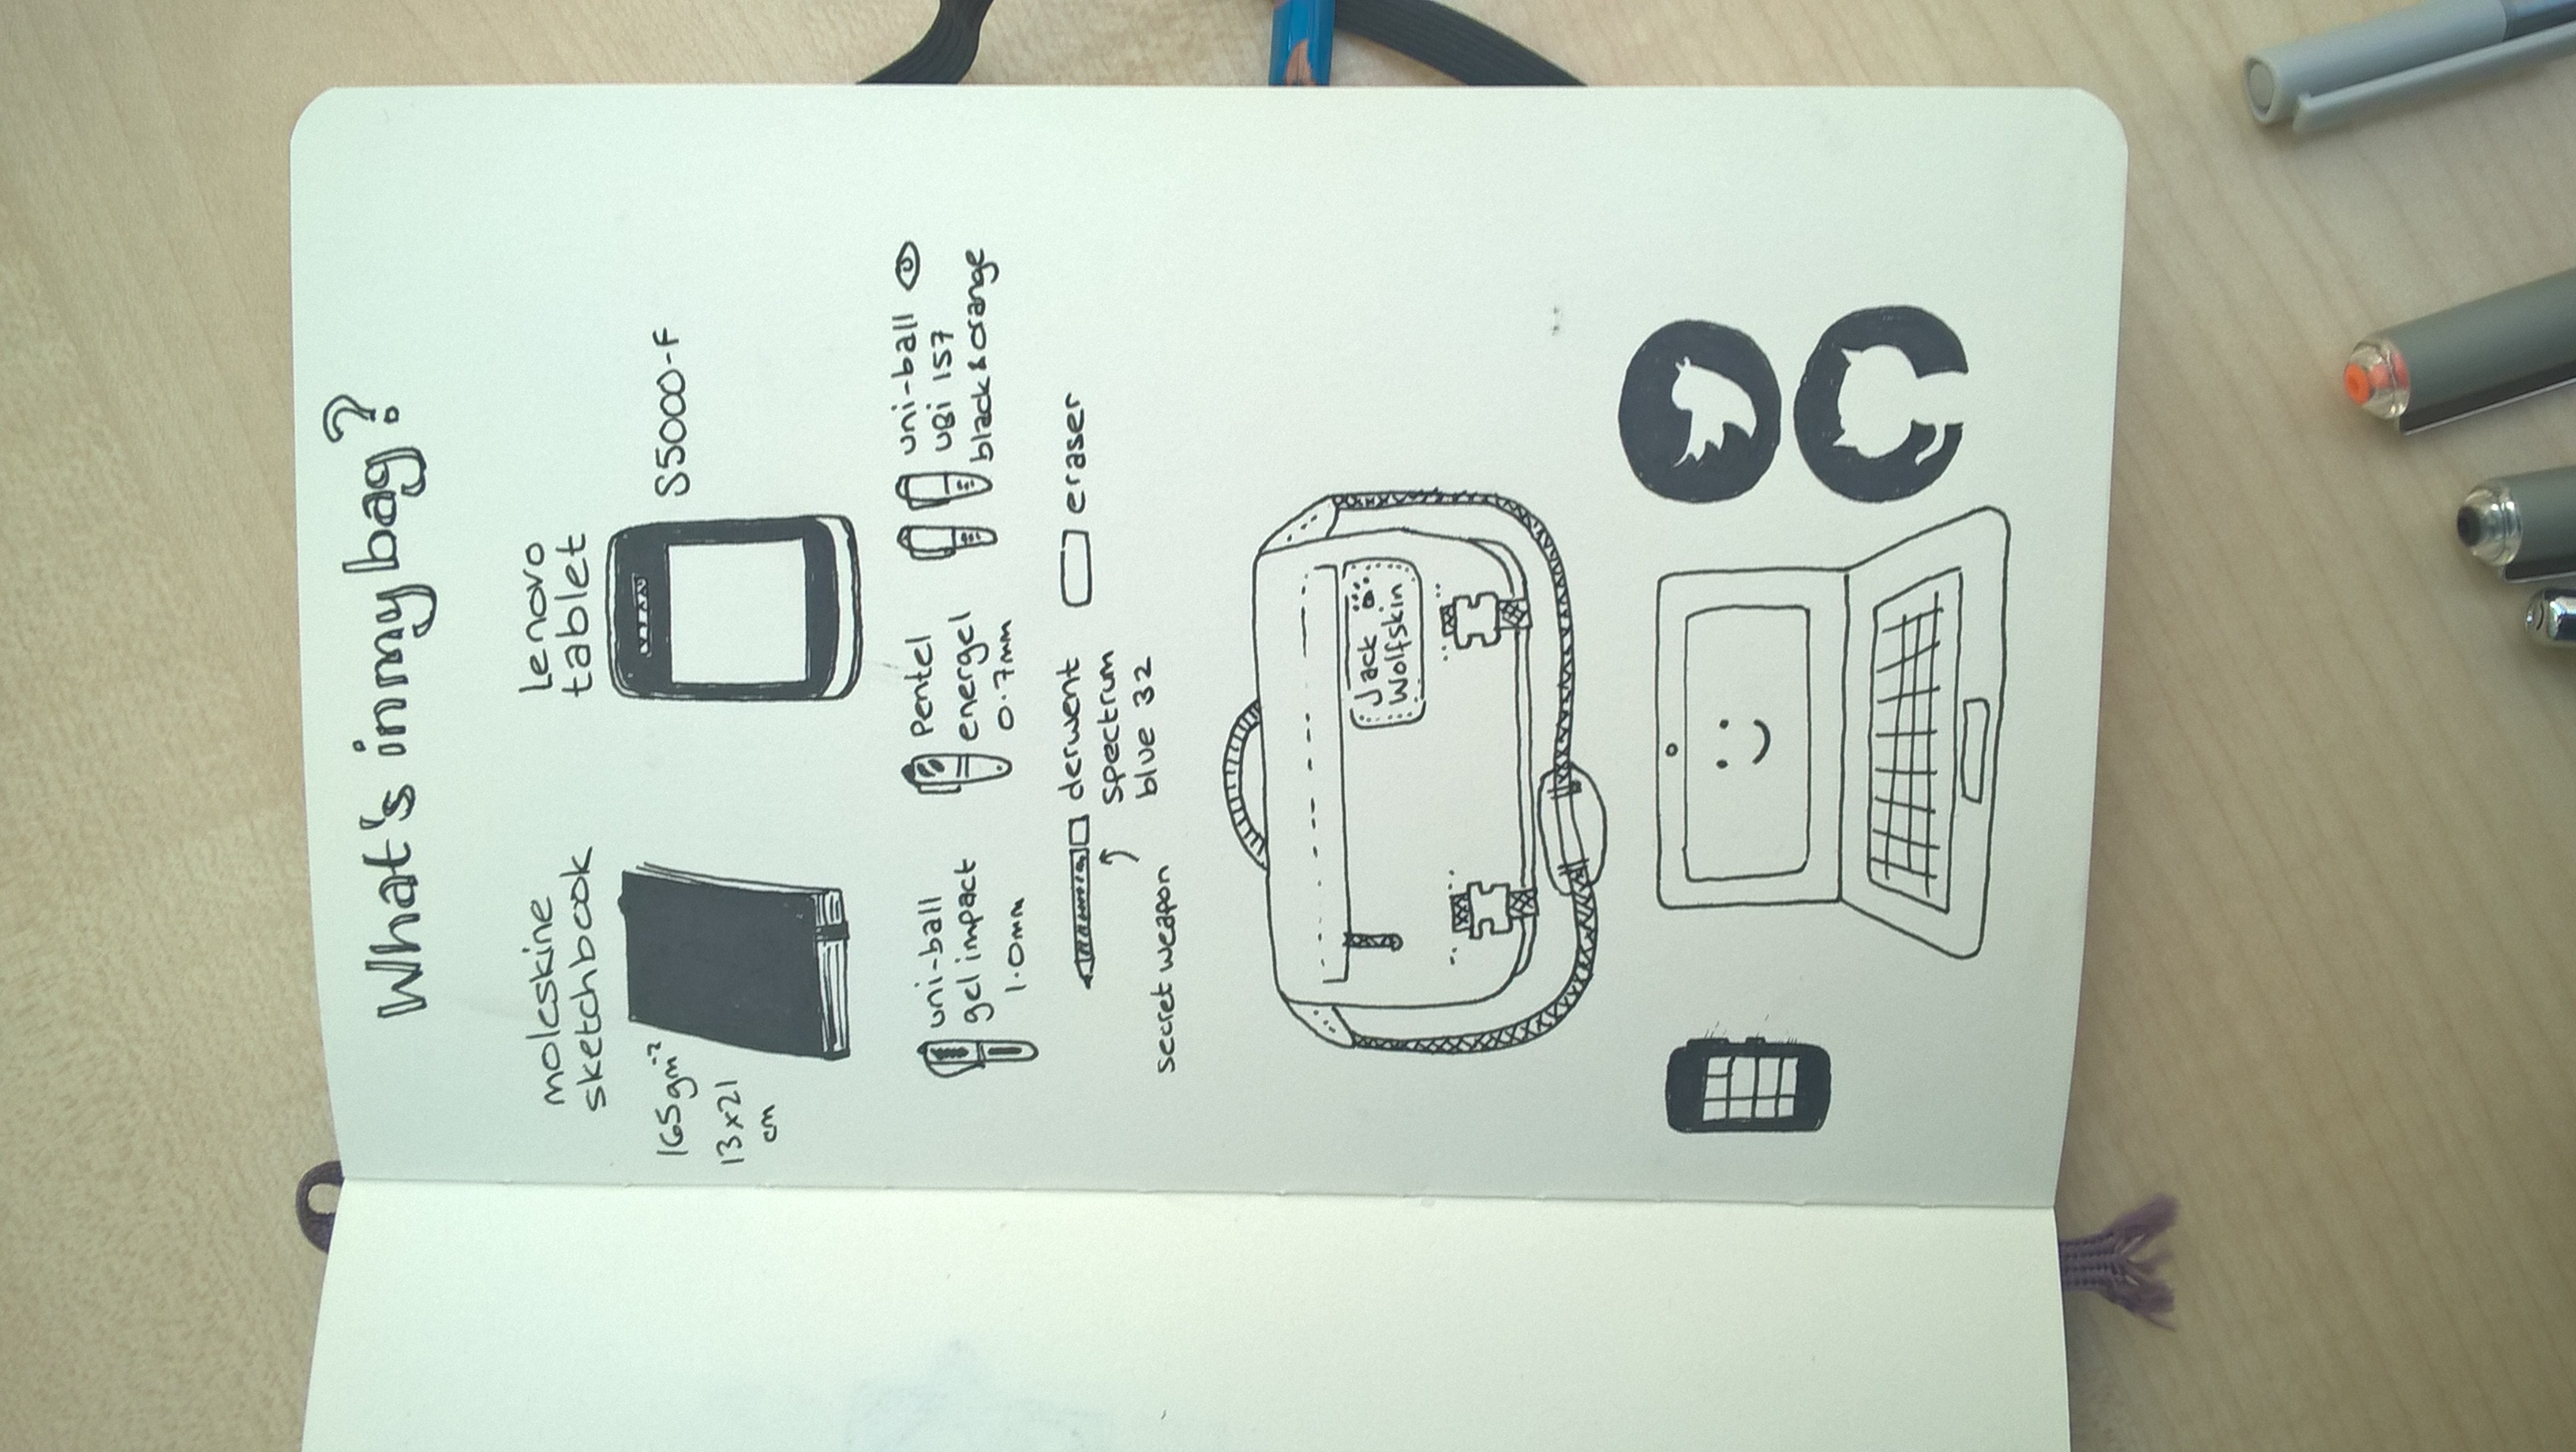 What's in my bag?
moleskine
sketchbook
165 gm⁻²
13 x 21
cm
lenovo
tablet
S5000-F
uni-ball
gel impact
1.0mm
Pentel
energel
0.7mm
uni-ball
UBi 157
black & orange
derwent
spectrum
blue 32
secret weapon
eraser
Jack
Wolfskin